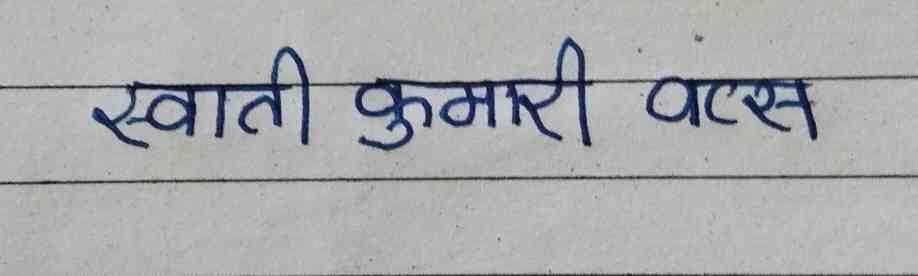 स्वाती कुमारी वत्स